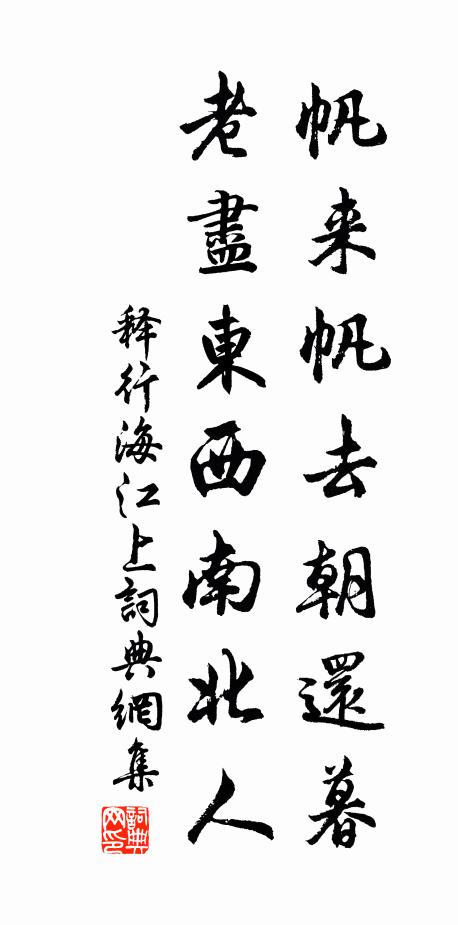 帆来帆去朝還暮
老盡東西南北人
释行海江上詞典網集
詞典网印